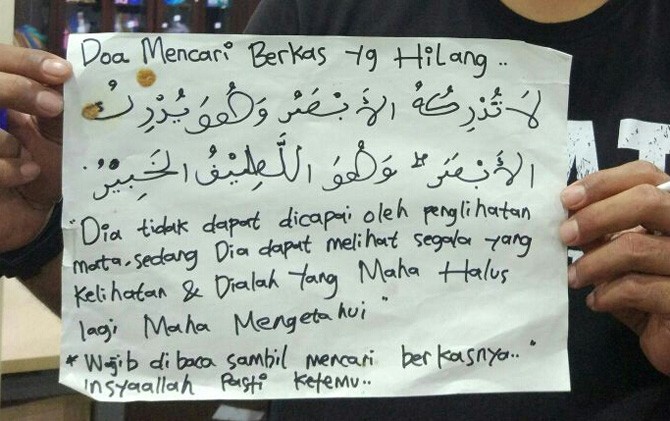 Doa Mencari Berkas yg Hilang..
لَا تُدْرِكُهُ الأَبْصَرُ وَهُوَ يُدْرِكُ
الأَبْصَرَ ۖ وَهُوَ اللَّطِيْفُ الخَبِيْرُ
"Dia tidak dapat dicapai oleh penglihatan
mata, sedang Dia dapat melihat segala yang
Kelihatan & Dialah Yang Maha Halus
lagi Maha Mengetahui"
* Wajib dibaca sambil mencari berkasnya.."
insyaallah Pasti Ketemu..